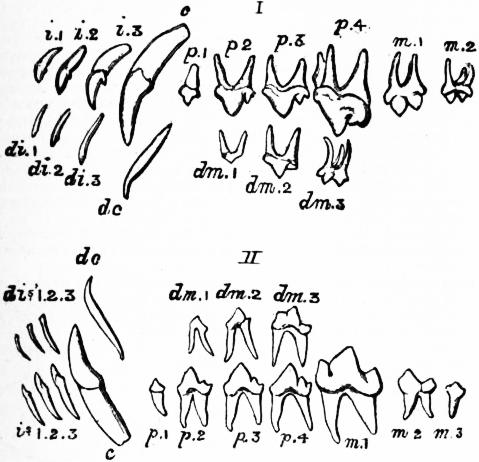 I
c
i.1 i.2 i.3
p.1 p2 p.3 p.4 m.1 m.2
di.1 di.2 di.3 dc
dm.1 dm.2 dm.3
II
dc
dis 1.2.3 dm.1 dm.2 dm.3
is 1.2.3 c p.1 p.2 p.3 p.4 m.1 m2 m.3